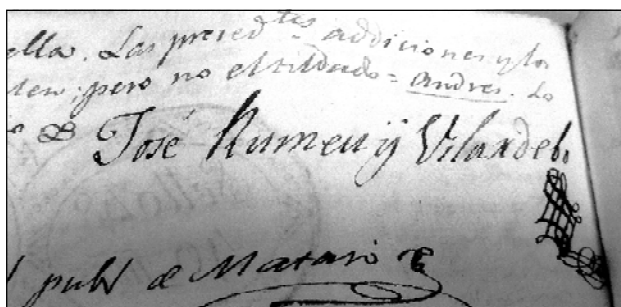 ella. Las preced.tes addiciones y los
den; pero no el tildado = Andres. Lo
D. José Rumeu ÿ Vilardebo
pub.o de Mataró